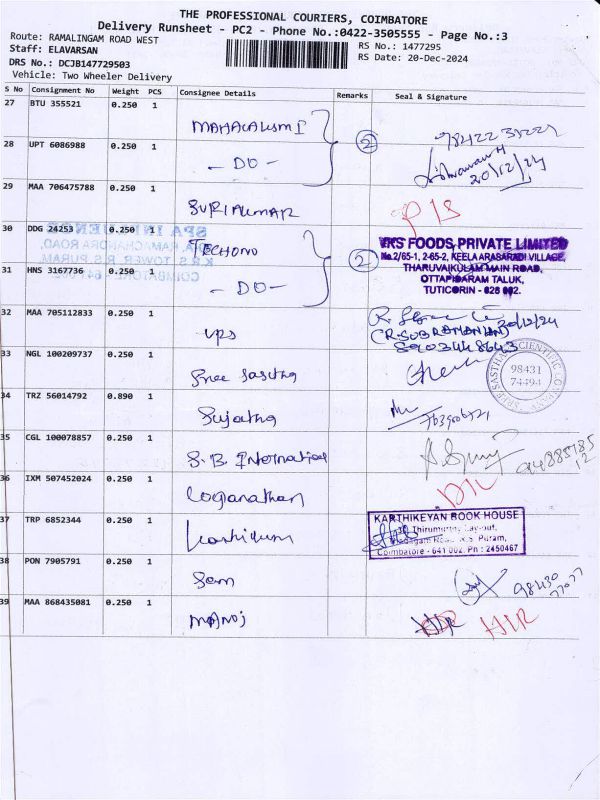 THE PROFESSIONAL COURIERS, COIMBATORE
Delivery Runsheet - PC2 - Phone No.:0422-3505555 - Page No.:3
Route: RAMALINGAM ROAD WEST
RS No.: 1477295
Staff: ELAVARSAN
RS Date: 20-Dec-2024
DRS No.: DCJB147729503
Vehicle: Two Wheeler Delivery
S No Consignment No Weight PCS Consignee Details Remarks Seal & Signature
27 BTU 355521 0.250 1 MAHALAKSMI
28 UPT 6086988 0.250 1 - DO - 2
20/12/24
29 MAA 706475788 0.250 1 SURIAKUMAR
30 DDG 24253 0.250 1 TECHONO
31 HNS 3167736 0.250 1 - DO - 2
VKS FOODS PRIVATE LIMITED
No.2/65-1, 2-65-2, KEELA ARASARADI VILLAGE,
THARUVAIKULAM MAIN ROAD,
OTTAPIDARAM TALUK,
TUTICORIN - 628 002.
32 MAA 705112833 0.250 1 VPS
(R.SUBRAMANIAN) 20/12/24
8903448643
33 NGL 100209737 0.250 1 Sree Sastha
SREE SASTHA SCIENTIFIC COMPANY
98431
74494
34 TRZ 56014792 0.890 1 Sujatha
35 CGL 100078857 0.250 1 S.B. International
36 IXM 507452024 0.250 1 Loganathan
37 TRP 6852344 0.250 1
KARTHIKEYAN BOOK HOUSE
Thirumurthy Lay-out,
Road R.S. Puram,
Coimbatore - 641 002. Pn : 2450467
38 PON 7905791 0.250 1 Sam
98430
77077
39 MAA 868435081 0.250 1 MANOJ